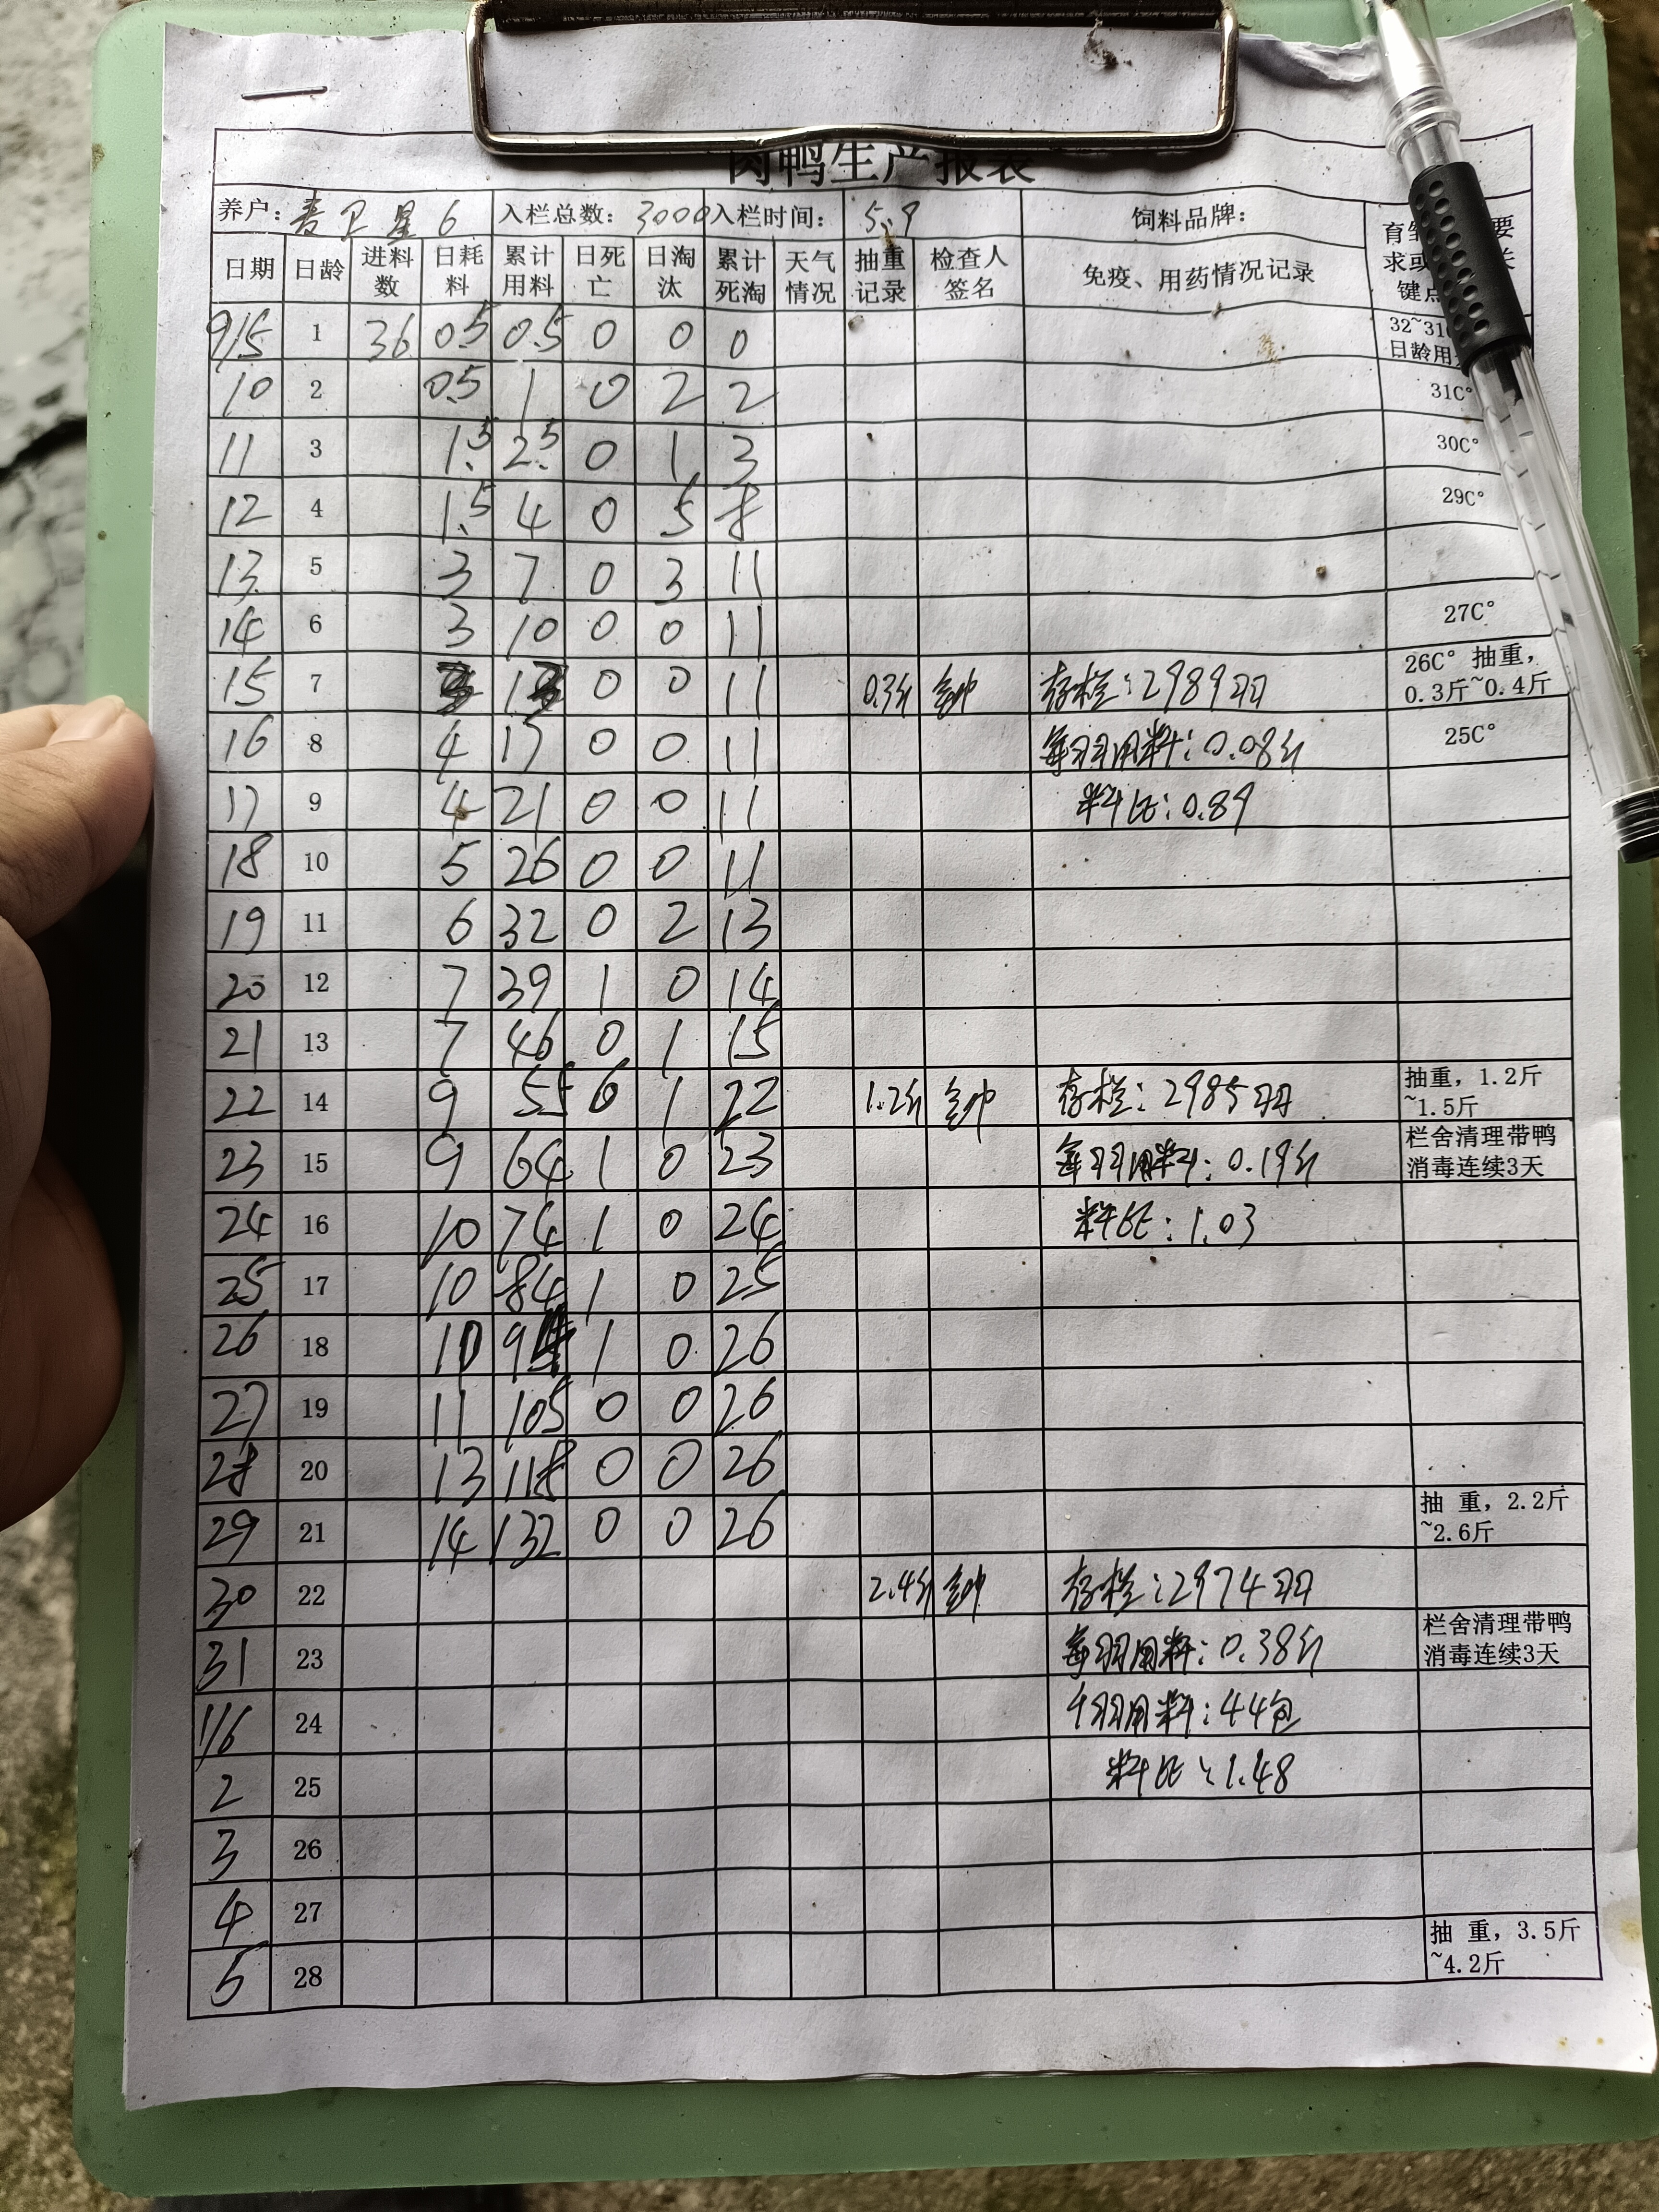 肉鸭生产报表
养户: 卫星6 入栏总数: 3000 入栏时间: 5.9 饲料品牌:
日期 日龄 进料数 日耗料 累计用料 日死亡 日淘汰 累计死淘 天气情况 抽重记录 检查人签名 免疫、用药情况记录 育 要求或 关键点
9/5 1 36 0.5 0.5 0 0 0 32~31 日龄用
10 2 0.5 1 0 2 2 31C°
11 3 1.5 2.5 0 1 3 30C°
12 4 1.5 4 0 5 8 29C°
13 5 3 7 0 3 11
14 6 3 10 0 0 11 27C°
15 7 0 0 11 0.3斤 存栏:2989羽 26C° 抽重,0.3斤~0.4斤
16 8 4 17 0 0 11 每羽用料:0.08斤 25C°
17 9 4 21 0 0 11 料比:0.89
18 10 5 26 0 0 11
19 11 6 32 0 2 13
20 12 7 39 1 0 14
21 13 7 46 0 1 15
22 14 9 55 6 1 22 1.2斤 存栏:2985羽 抽重,1.2斤~1.5斤
23 15 9 64 1 0 23 每羽用料:0.19斤 栏舍清理带鸭消毒连续3天
24 16 10 74 1 0 24 料比:1.03
25 17 10 84 1 0 25
26 18 10 94 1 0 26
27 19 11 105 0 0 26
28 20 13 118 0 0 26
29 21 14 132 0 0 26 抽 重,2.2斤~2.6斤
30 22 2.4斤 存栏:2974羽
31 23 每羽用料:0.38斤 栏舍清理带鸭消毒连续3天
1/6 24 千羽用料:44包
2 25 料比:1.48
3 26
4 27
5 28 抽 重,3.5斤~4.2斤